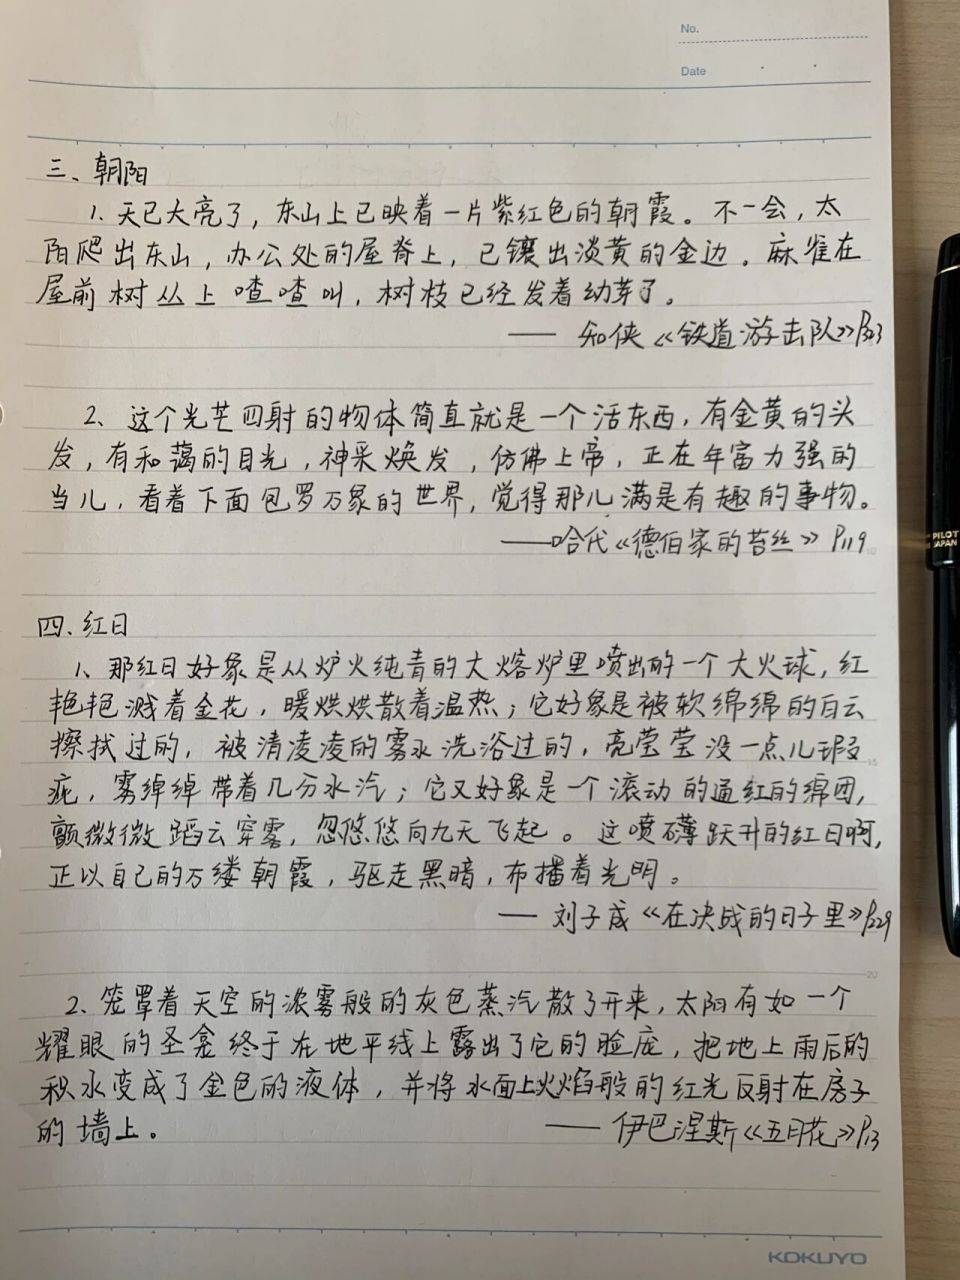 No.
Date
三、朝阳
1、天已大亮了，东山上已映着一片紫红色的朝霞。不一会，太
阳爬出东山，办公处的屋脊上，已镶出淡黄的金边。麻雀在
屋前树丛上喳喳叫，树枝已经发着幼芽了。
—— 知侠《铁道游击队》P23
2、这个光芒四射的物体简直就是一个活东西，有金黄的头
发，有和蔼的目光，神采焕发，仿佛上帝，正在年富力强的
当儿，看着下面包罗万象的世界，觉得那儿满是有趣的事物。
——哈代《德伯家的苔丝》P119
四、红日
1、那红日好象是从炉火纯青的大熔炉里喷出的一个大火球，红
艳艳溅着金花，暖烘烘散着温热；它好象是被软绵绵的白云
擦拭过的，被清凌凌的雾水洗浴过的，亮莹莹没一点儿瑕
疵，雾绰绰带着几分水汽；它又好象是一个滚动的通红的绵团，
颤微微蹈云穿雾，忽悠悠向九天飞起。这喷薄跃升的红日啊，
正以自己的万缕朝霞，驱走黑暗，布播着光明。
—— 刘子成《在决战的日子里》P229
2、笼罩着天空的浓雾般的灰色蒸汽散了开来，太阳有如一个
耀眼的圣龛终于在地平线上露出了它的脸庞，把地上雨后的
积水变成了金色的液体，并将水面上火焰般的红光反射在房子
的墙上。
—— 伊巴涅斯《五月花》P13
KOKUYO
PILOT
JAPAN